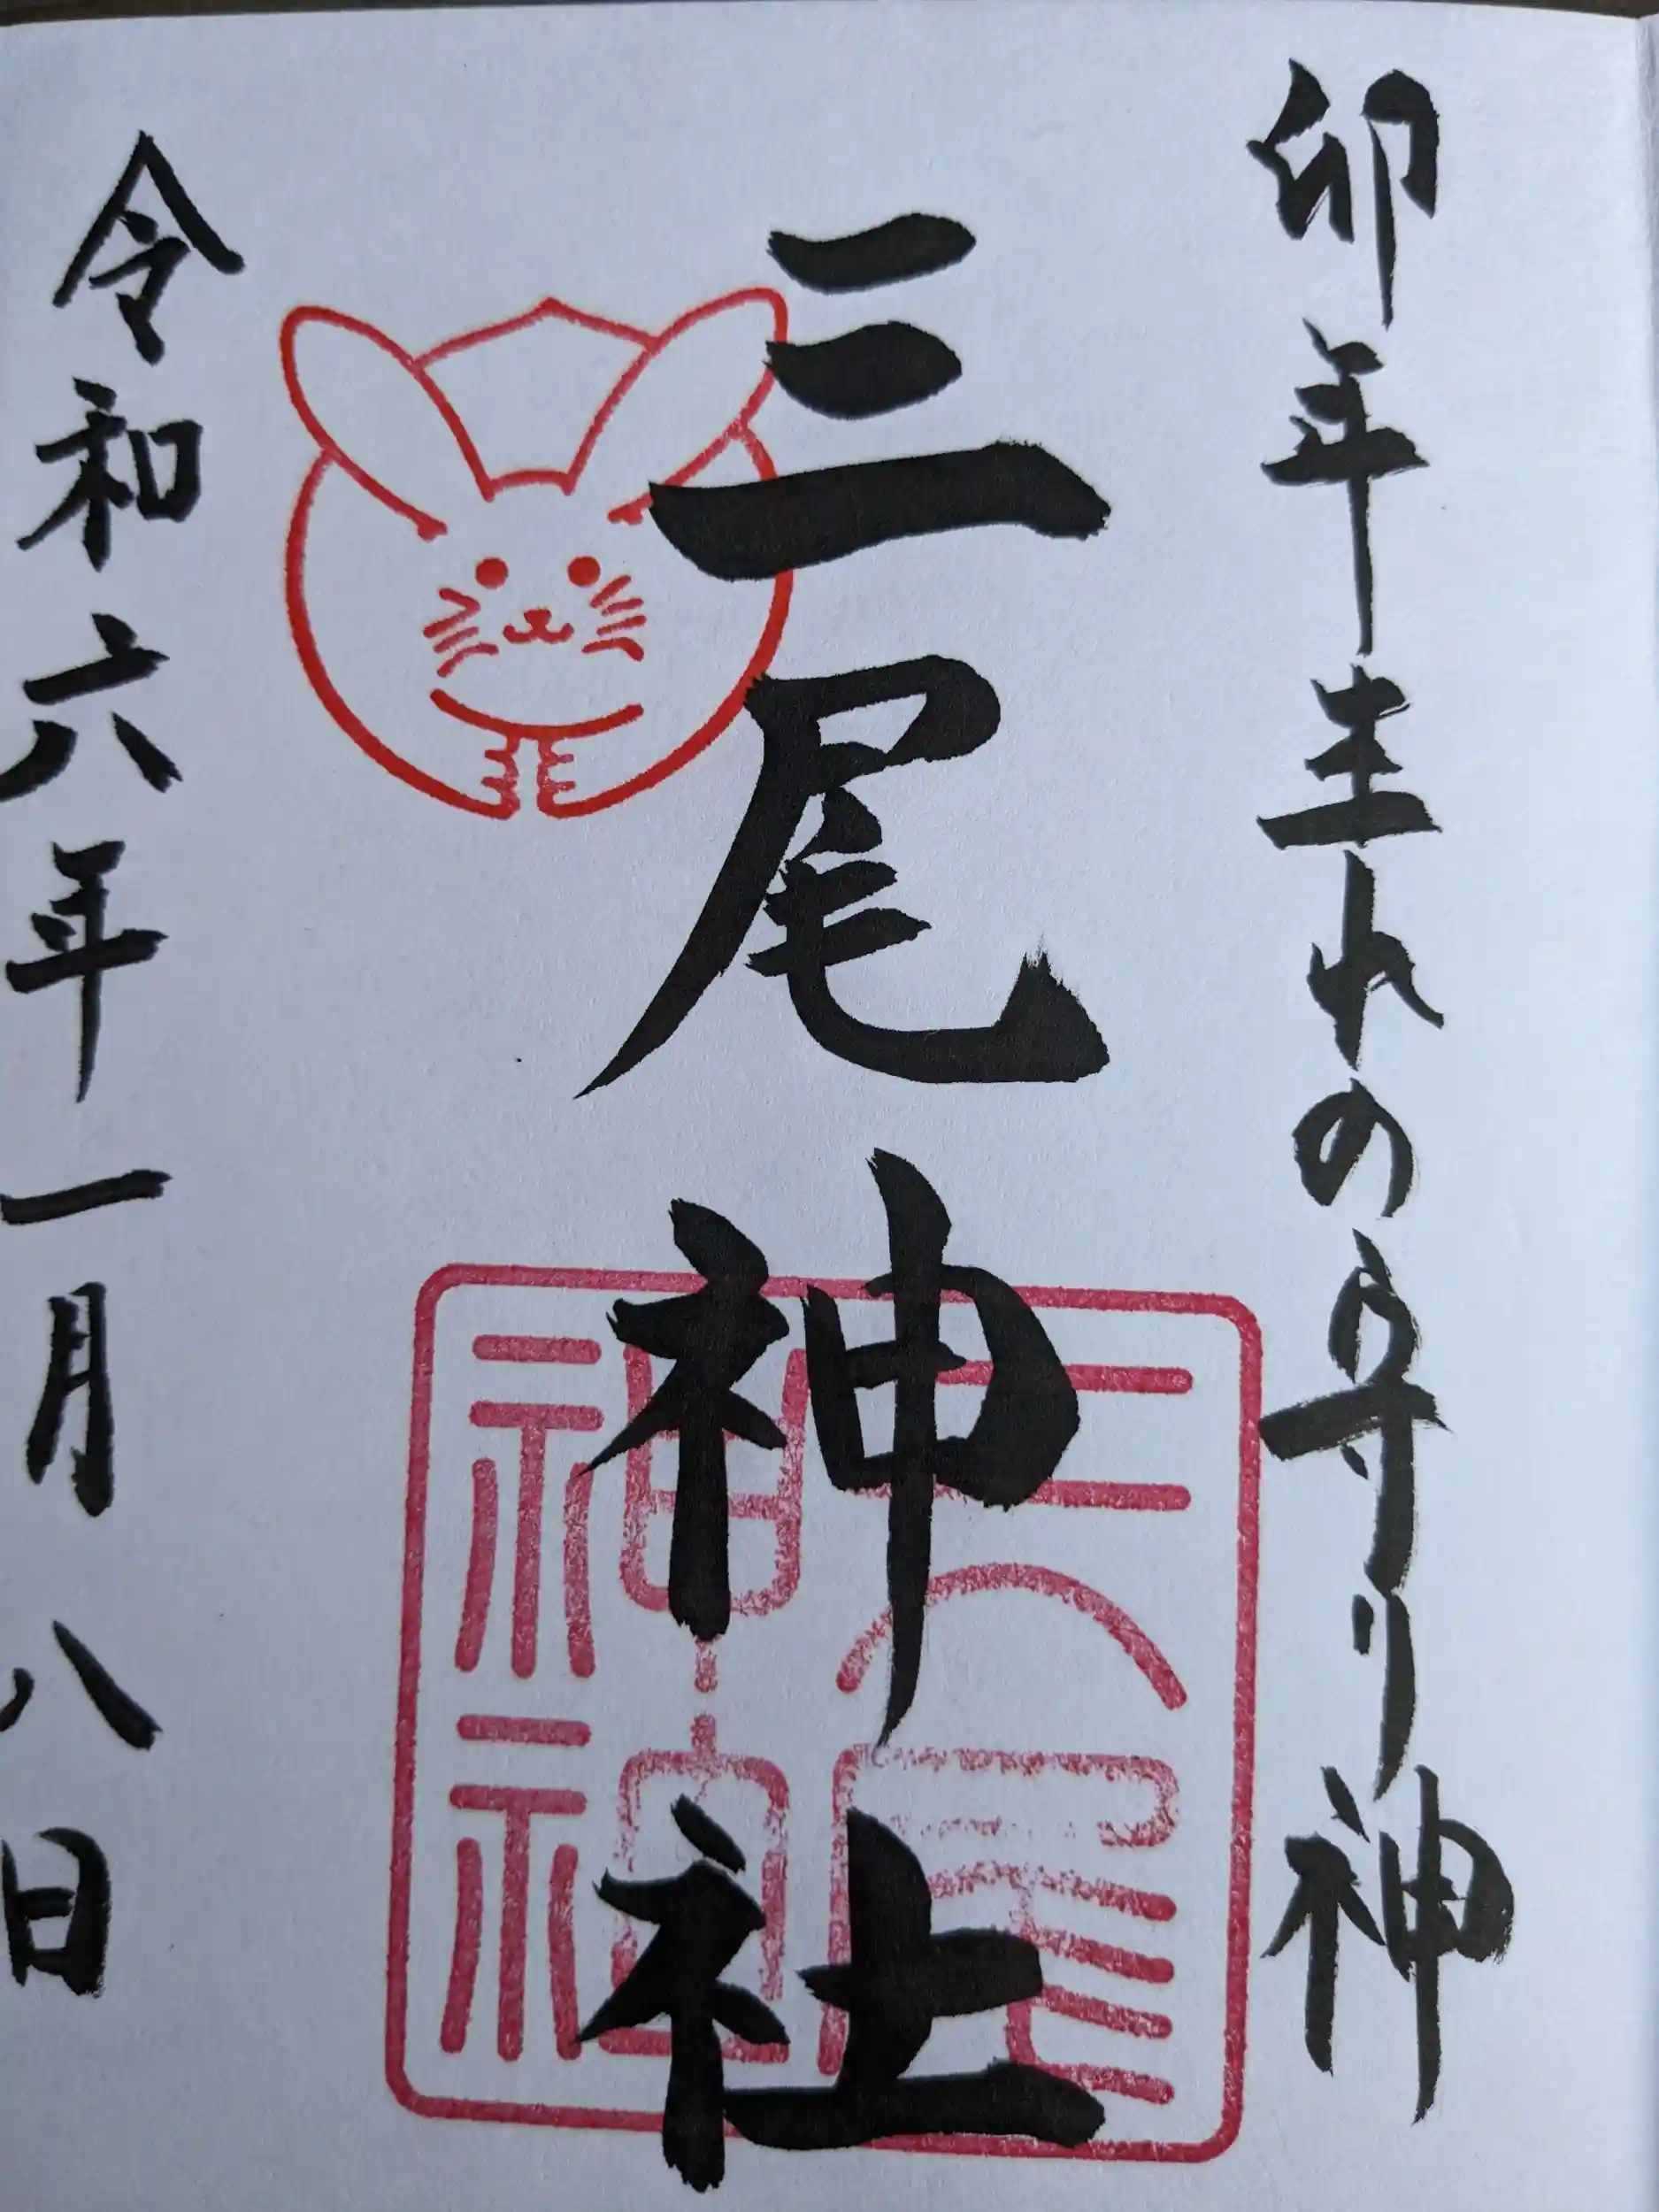 卯年生れの守り神
三尾神社
三尾神社
令和六年一月八日